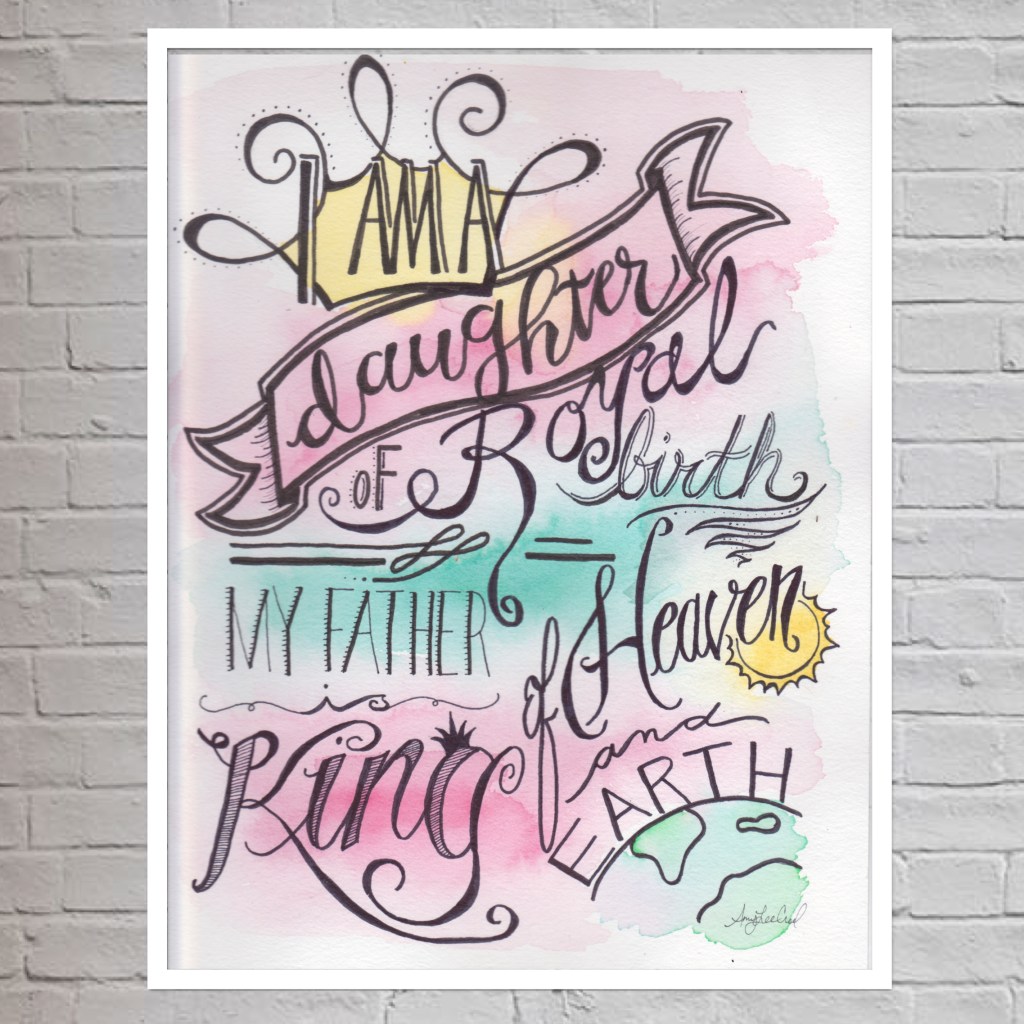 I AM A
daughter
OF Royal
birth
MY FATHER
is
King
of Heaven
and
EARTH